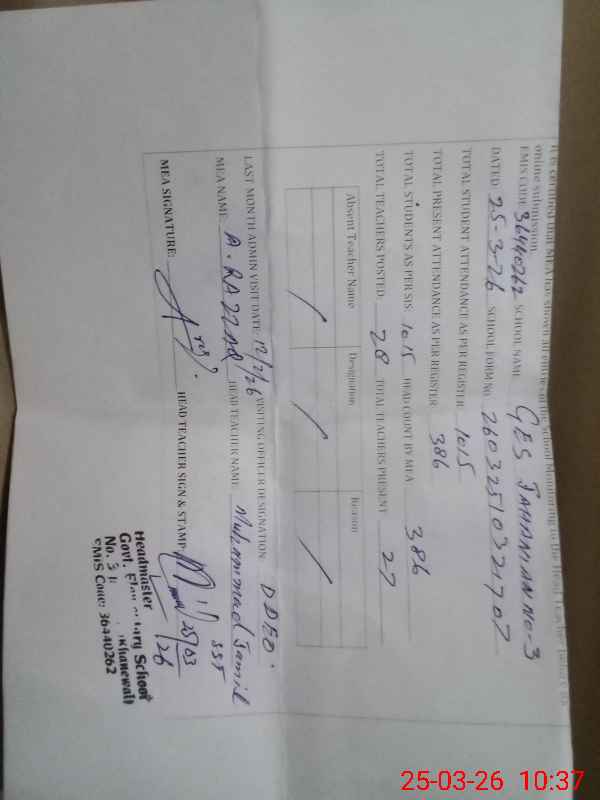 It is certified that MEA has shown all entries of the School Monitoring to the Head Teacher before
online submission.
EMIS CODE: 36440262 SCHOOL NAME: GES JAHANIAN NO-3
DATED: 25-3-26 SCHOOL FORM NO. 26032510321707
TOTAL STUDENT ATTENDANCE AS PER REGISTER: 1015
TOTAL PRESENT ATTENDANCE AS PER REGISTER: 386
TOTAL STUDENTS AS PER SIS: 1015 HEAD COUNT BY MEA: 386
TOTAL TEACHERS POSTED: 28 TOTAL TEACHERS PRESENT 27
Absent Teacher Name Designation Reason
LAST MONTH ADMIN VISIT DATE: 12/2/26 VISITING OFFICER DESIGNATION: DDEO.
MEA NAME: A. RAZZAQ HEAD TEACHER NAME: Muhammad Jamil
SST
MEA SIGNATURE: HEAD TEACHER SIGN & STAMP: 25/03/26
Headmaster
Govt. School
No. 3 Khanewal
EMIS Code: 36440262
25-03-26 10:37